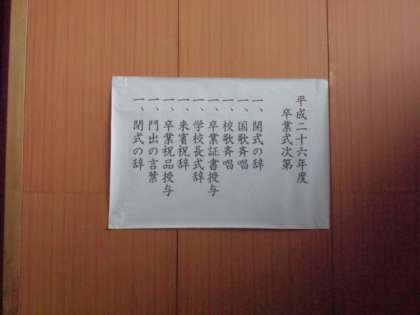 平成二十六年度
卒業式次第
一、開式の辞
一、国歌斉唱
一、校歌斉唱
一、卒業証書授与
一、学校長式辞
一、来賓祝辞
一、卒業祝品授与
一、門出の言葉
一、閉式の辞